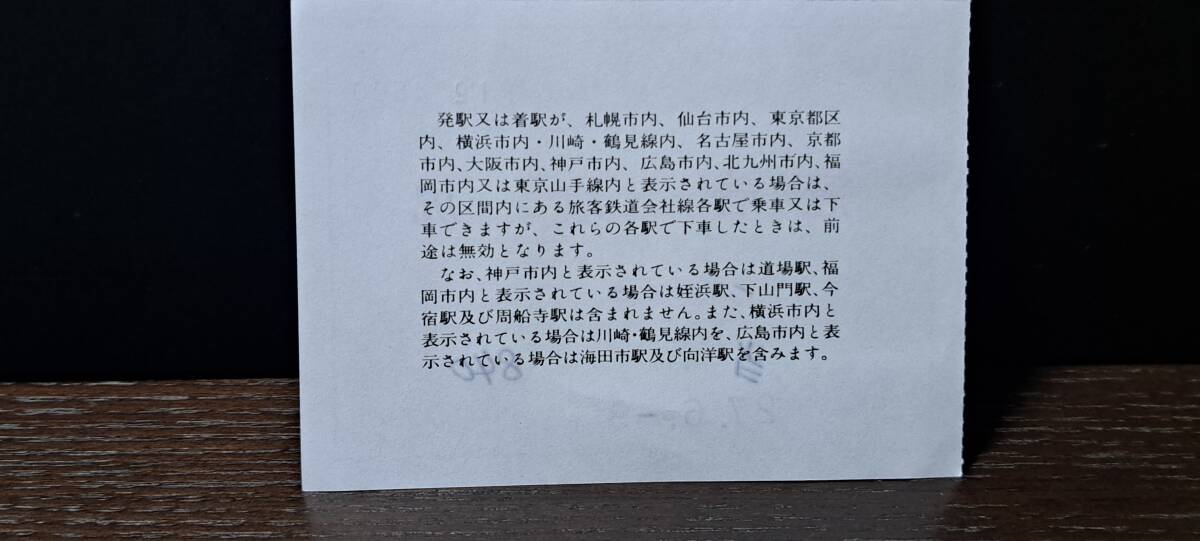 発駅又は着駅が、札幌市内、仙台市内、東京都区
内、横浜市内・川崎・鶴見線内、名古屋市内、京都
市内、大阪市内、神戸市内、広島市内、北九州市内、福
岡市内又は東京山手線内と表示されている場合は、
その区間内にある旅客鉄道会社線各駅で乗車又は下
車できますが、これらの各駅で下車したときは、前
途は無効となります。
なお、神戸市内と表示されている場合は道場駅、福
岡市内と表示されている場合は姪浜駅、下山門駅、今
宿駅及び周船寺駅は含まれません。また、横浜市内と
表示されている場合は川崎・鶴見線内を、広島市内と表
示されている場合は海田市駅及び向洋駅を含みます。